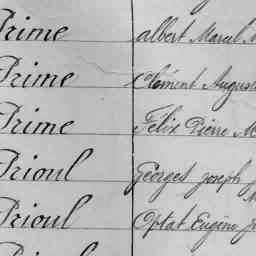 Prime Albert Marcel
Prime Clément Auguste
Prime Félix Pierre
Prioul Georges Joseph
Prioul Optat Eugène